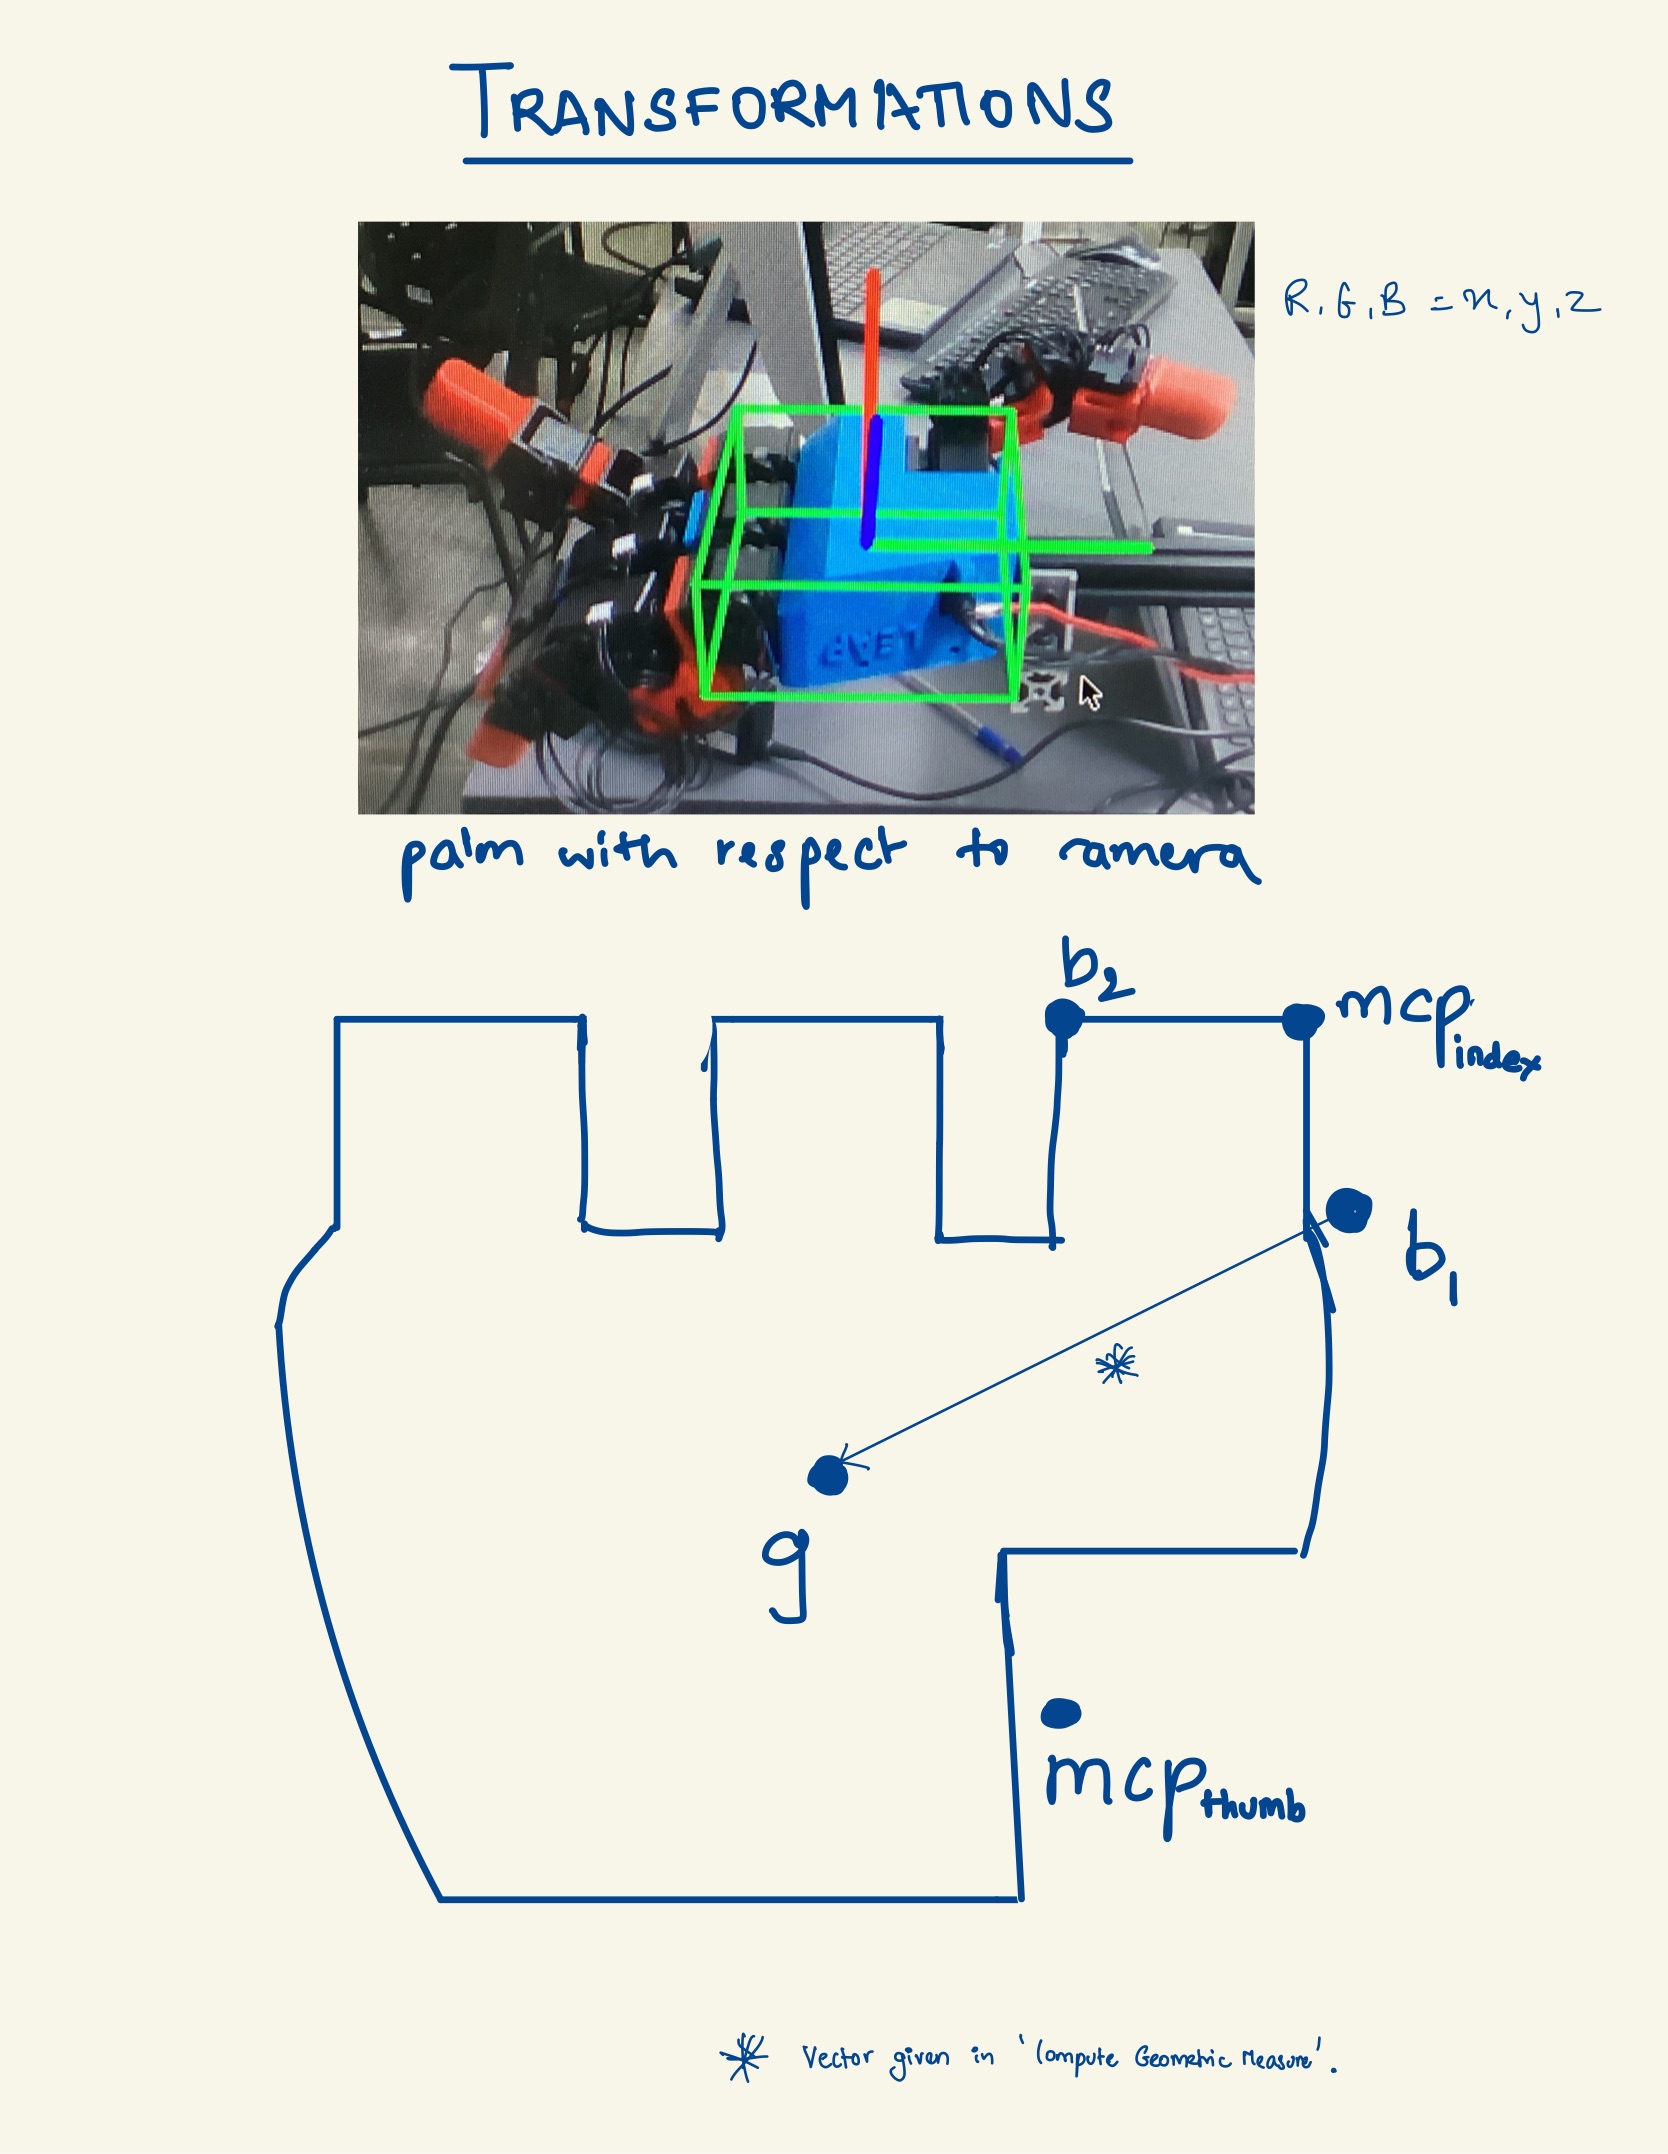 TRANSFORMATIONS
R, G, B = x, y, z
LEAP
palm with respect to camera
b2
mcp index
b1
*
g
mcp thumb
* Vector given in 'Compute Geometric Measure'.